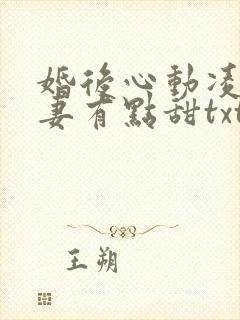 婚後心動凌
妻有點甜txt
王朔